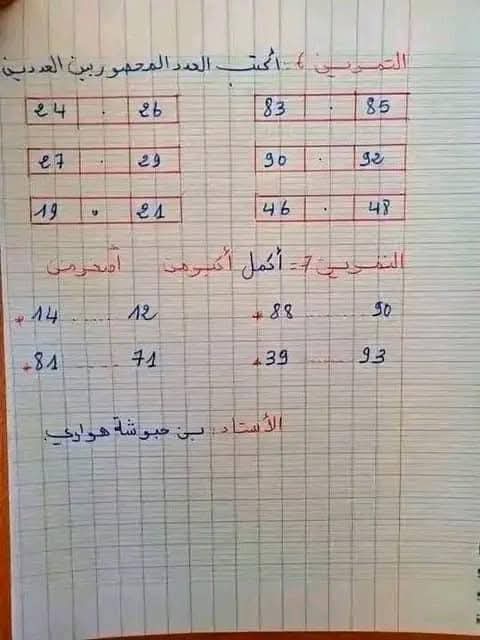 التمرين 6 = أكتب العدد المحصور بين العددين
24 . 26 83 . 85
27 . 29 90 . 92
19 . 21 46 . 48
التمرين 7 = أكمل أكبر من أصغر من
* 14 ...... 12 * 88 ......... 90
* 81 ...... 71 * 39 ......... 93
الأستاذ : بن حبوشة هواري.